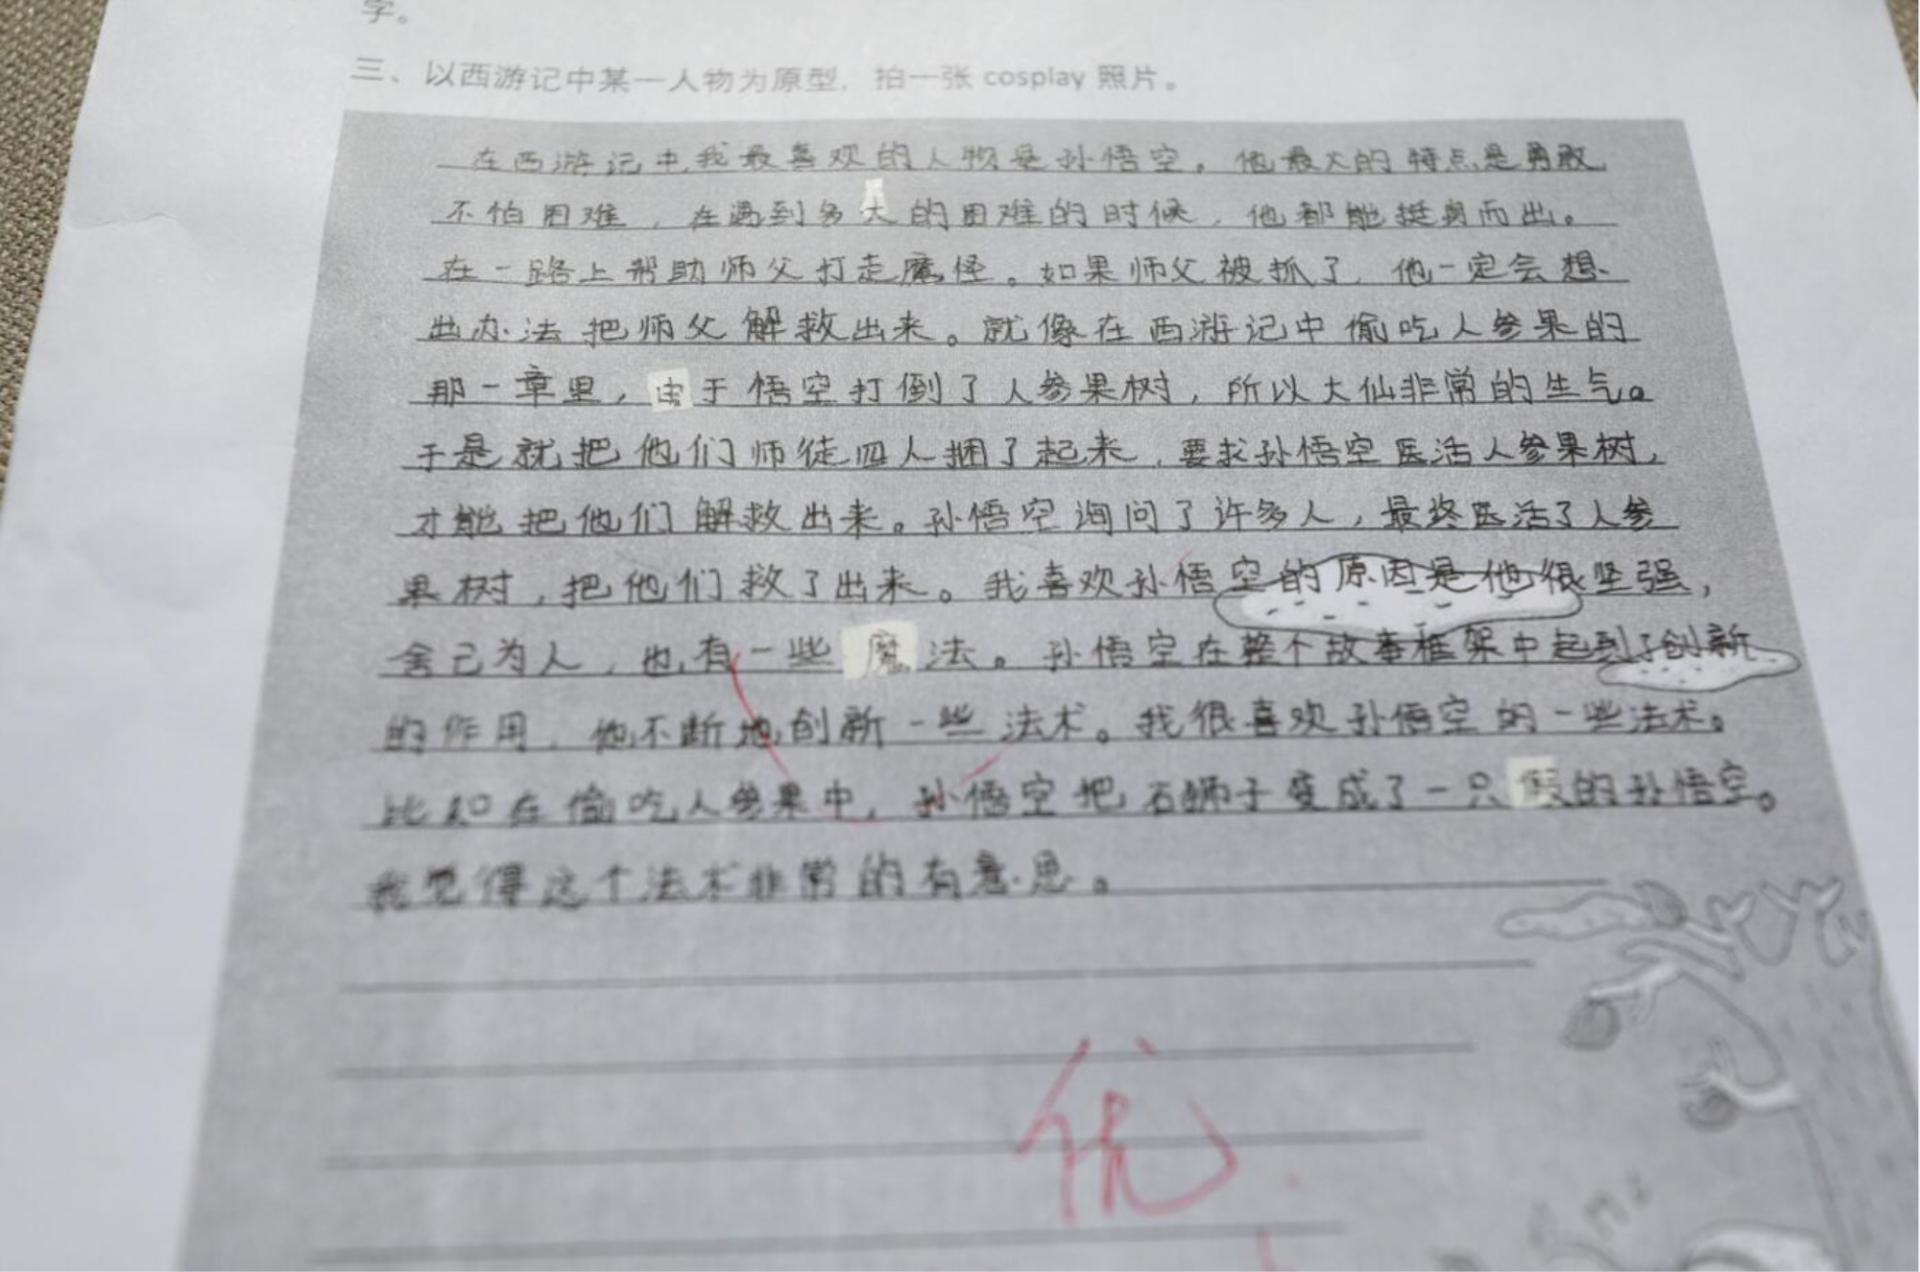 字。
三、以西游记中某一人物为原型，拍一张 cosplay 照片。
在西游记中我最喜欢的人物是孙悟空。他最大的特点是勇敢
不怕困难，在遇到多大的困难的时候，他都能挺身而出。
在一路上帮助师父打走魔怪。如果师父被抓了，他一定会想
出办法把师父解救出来。就像在西游记中偷吃人参果的
那一章里，由于悟空打倒了人参果树，所以大仙非常的生气。
于是就把他们师徒四人捆了起来，要求孙悟空医活人参果树，
才能把他们解救出来。孙悟空询问了许多人，最终医活了人参
果树，把他们救了出来。我喜欢孙悟空的原因是他很坚强，
舍己为人，也有一些魔法。孙悟空在整个故事框架中起到了创新
的作用，他不断地创新一些法术。我很喜欢孙悟空的一些法术。
比如在偷吃人参果中，孙悟空把石狮子变成了一只假的孙悟空。
我觉得这个法术非常的有意思。
优